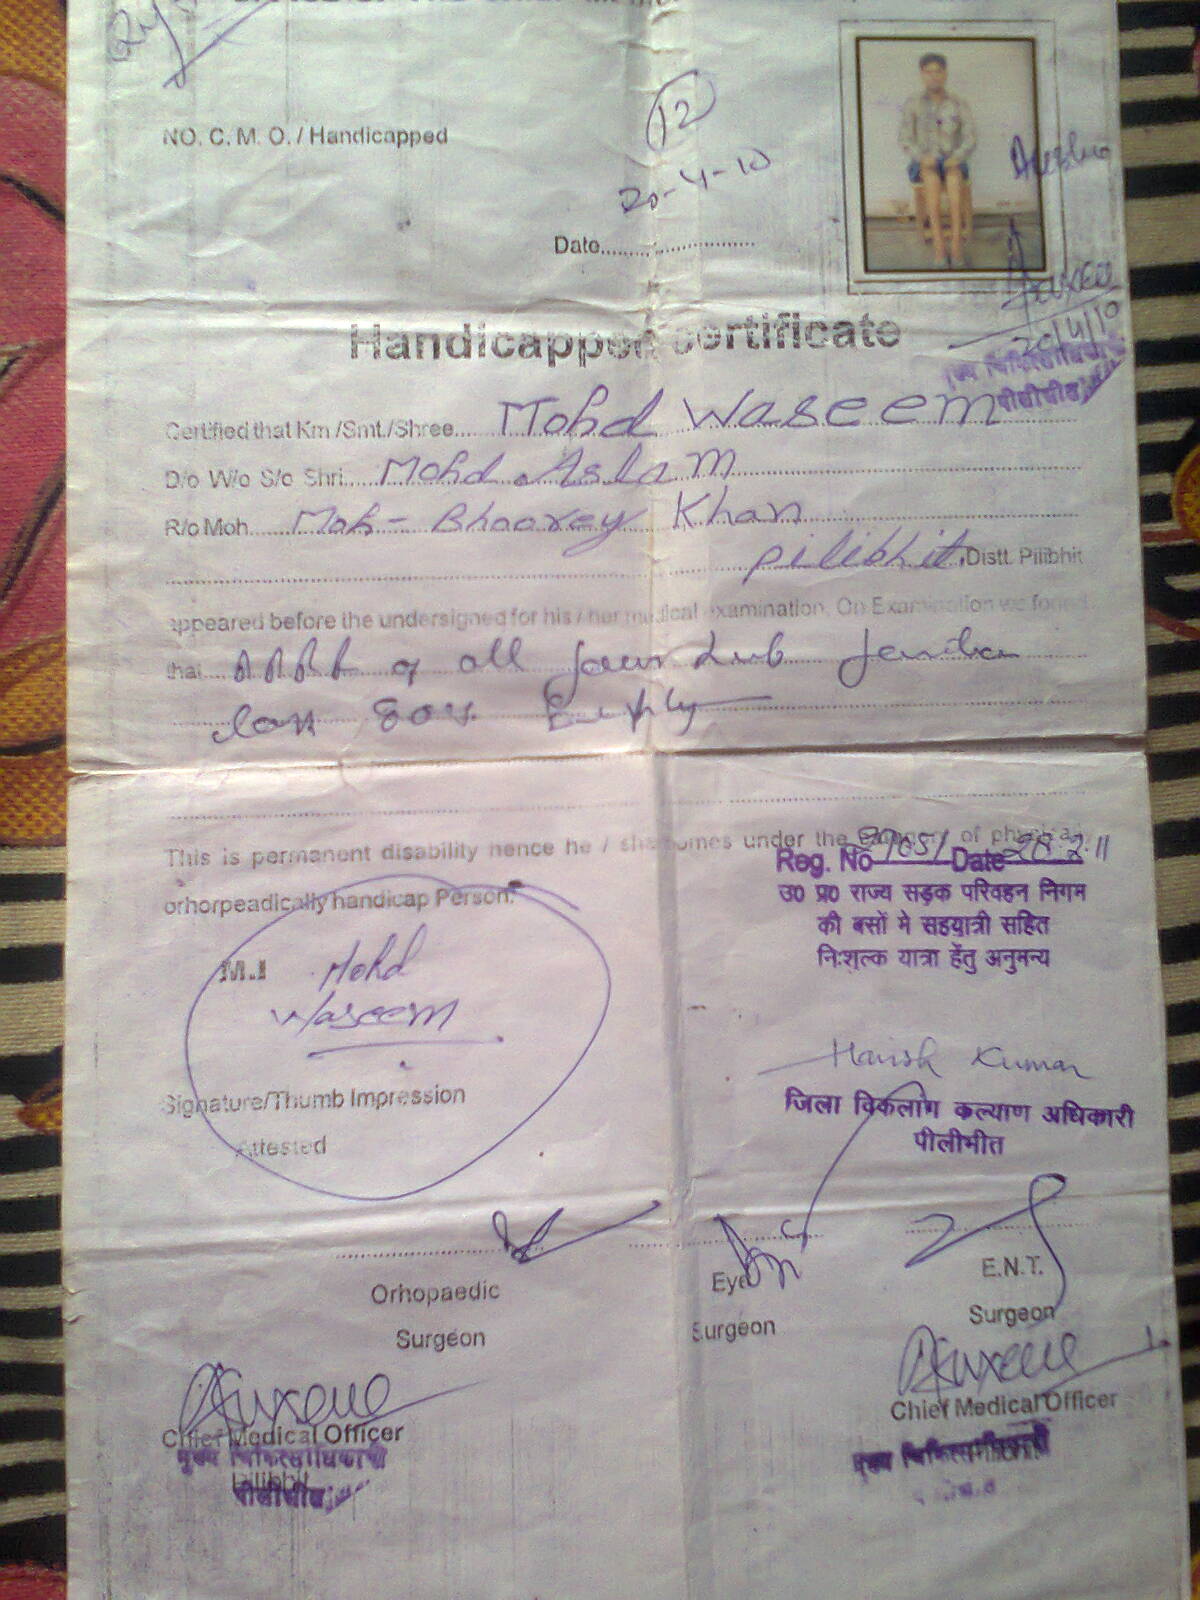 NO. C. M. O. / Handicapped
12
20-4-10
Date
20/4/10
Handicapped certificate
Certified that Km/Smt./Shree Mohd Waseem
D/o W/o S/o Shri Mohd Aslam
R/o Moh. Moh- Bhoorey Khan
pilibhit Distt. Pilibhit
appeared before the undersigned for his / her medical examination. On Examination we found
that of all four
80%
This is permanent disability hence he / she comes under the of physical
orhorpeadically handicap Person.
Reg. No Date 28.2.11
उ0 प्र0 राज्य सड़क परिवहन निगम
की बसों मे सहयात्री सहित
नि:शुल्क यात्रा हेंतु अनुमन्य
M.I Mohd
Waseem
Harish Kumar
Signature/Thumb Impression
जिला विकलांग कल्याण अधिकारी
Attested
पीलीभीत
Orhopaedic
Surgeon
Eye
Surgeon
E.N.T.
Surgeon
Chief Medical Officer
मुख्य चिकित्साधिकारी
Pilibhit
पीलीभीत
Chief Medical Officer
मुख्य चिकित्साधिकारी